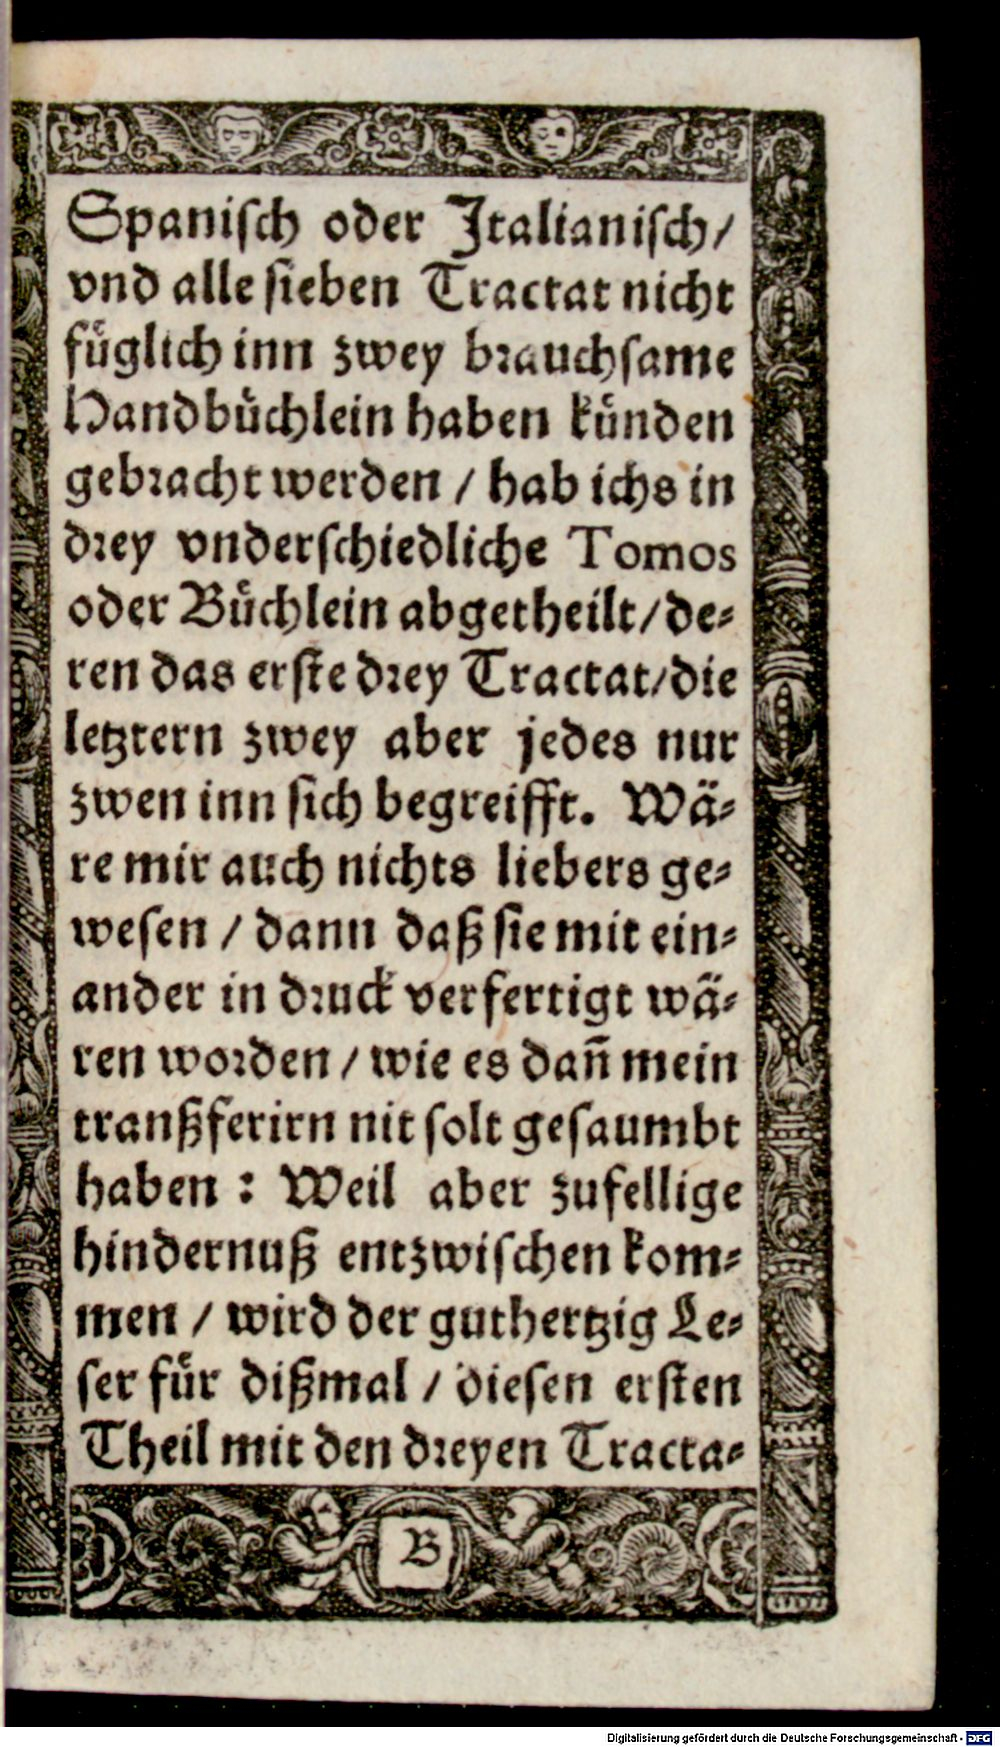 Spanisch oder Italianisch/
vnd alle sieben Tractat nicht
fuͤglich inn zwey brauchsame
Handbuͤchlein haben kuͤnden
gebracht werden / hab ichs in
drey vnderschiedliche Tomos
oder Buͤchlein abgetheilt/ de-
ren das erste drey Tractat/die
letztern zwey aber jedes nur
zwen inn sich begreifft. Waͤ-
re mir auch nichts liebers ge-
wesen / dann daß sie mit ein-
ander in druck verfertigt waͤ-
ren worden / wie es dañ mein
tranßferirn nit solt gesaumbt
haben : Weil aber zufellige
hindernuß entzwischen kom-
men / wird der guthertzig Le-
ser fuͤr dißmal / diesen ersten
Theil mit den dreyen Tracta-
B
Digitalisierung gefördert durch die Deutsche Forschungsgemeinschaft - DFG